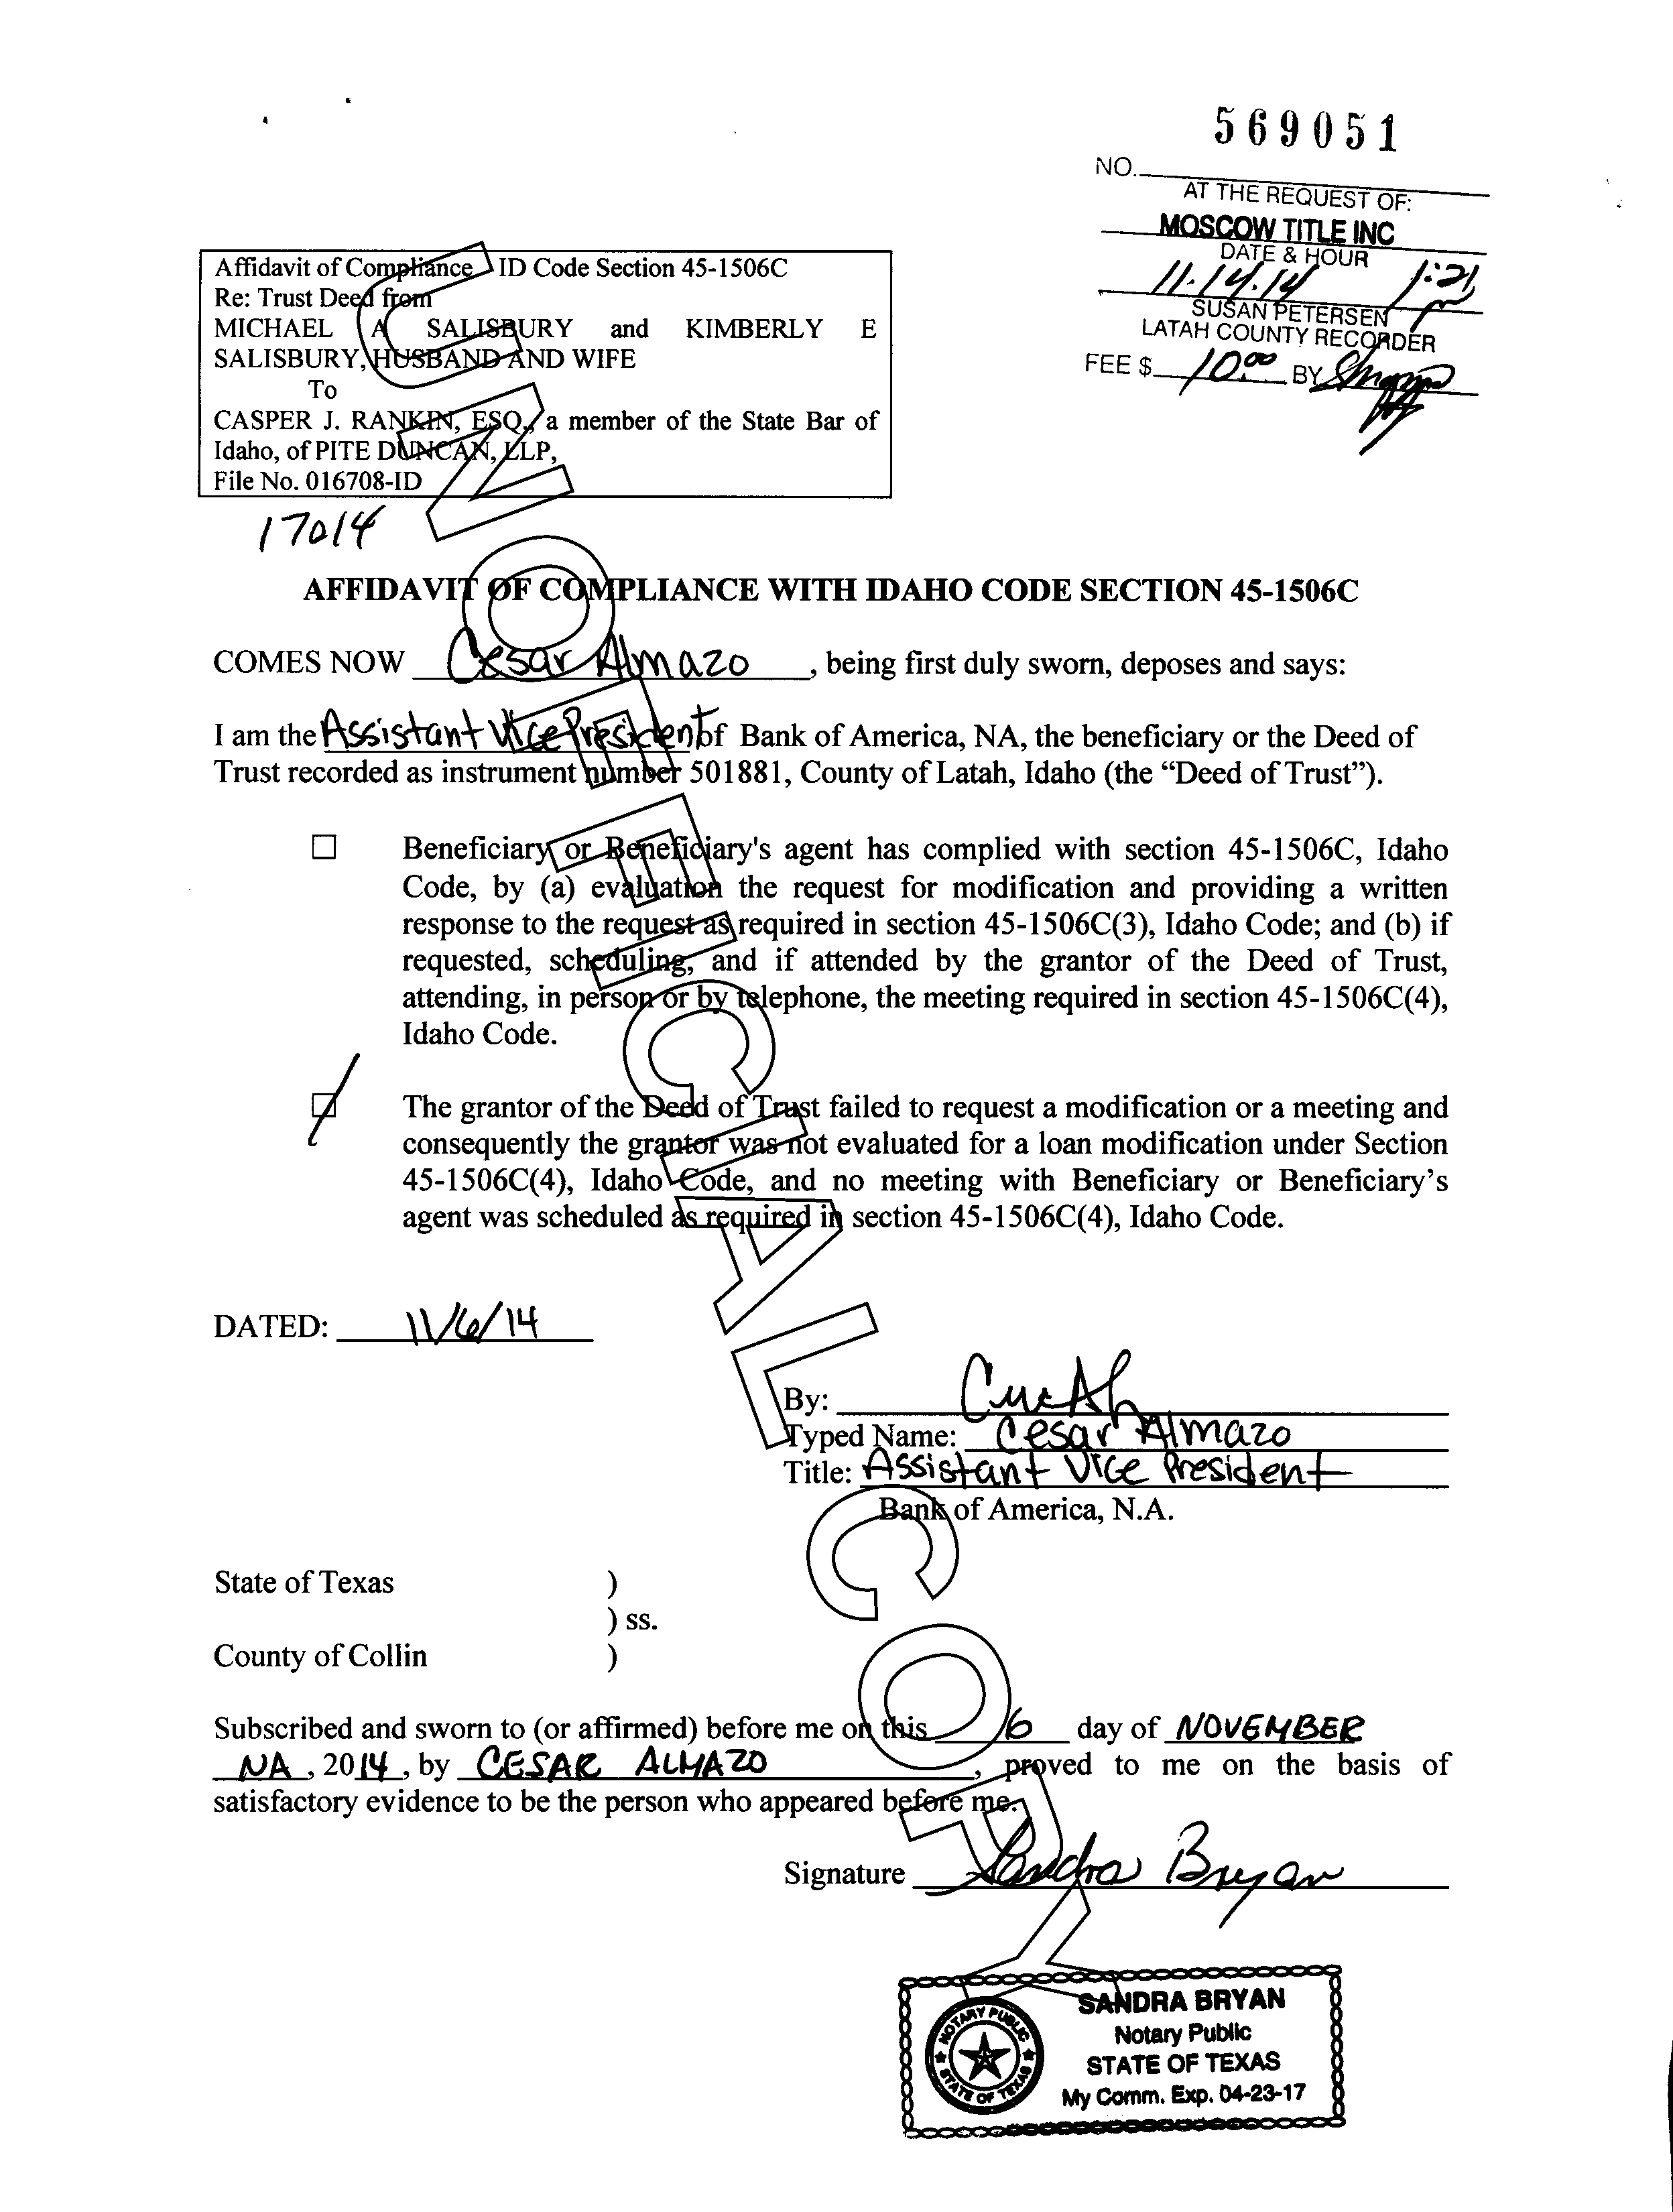 569051
NO.
AT THE REQUEST OF:
MOSCOW TITLE INC
DATE & HOUR
11.14.14 1:21
SUSAN PETERSEN
LATAH COUNTY RECORDER
FEE $ 10.00 BY
Affidavit of Compliance ID Code Section 45-1506C
Re: Trust Deed from
MICHAEL A SALISBURY and KIMBERLY E
SALISBURY, HUSBAND AND WIFE
To
CASPER J. RANKIN, ESQ., a member of the State Bar of
Idaho, of PITE DUNCAN, LLP,
File No. 016708-ID
17014
AFFIDAVIT OF COMPLIANCE WITH IDAHO CODE SECTION 45-1506C
COMES NOW Cesar Almazo, being first duly sworn, deposes and says:
I am the Assistant Vice President of Bank of America, NA, the beneficiary or the Deed of
Trust recorded as instrument number 501881, County of Latah, Idaho (the “Deed of Trust”).
Beneficiary or Beneficiary's agent has complied with section 45-1506C, Idaho
Code, by (a) evaluation the request for modification and providing a written
response to the request as required in section 45-1506C(3), Idaho Code; and (b) if
requested, scheduling, and if attended by the grantor of the Deed of Trust,
attending, in person or by telephone, the meeting required in section 45-1506C(4),
Idaho Code.
The grantor of the Deed of Trust failed to request a modification or a meeting and
consequently the grantor was not evaluated for a loan modification under Section
45-1506C(4), Idaho Code, and no meeting with Beneficiary or Beneficiary’s
agent was scheduled as required in section 45-1506C(4), Idaho Code.
DATED: 11/6/14
By:
Typed Name: Cesar Almazo
Title: Assistant Vice President
Bank of America, N.A.
State of Texas )
) ss.
County of Collin )
Subscribed and sworn to (or affirmed) before me on this 6 day of NOVEMBER
NA, 2014, by CESAR ALMAZO, proved to me on the basis of
satisfactory evidence to be the person who appeared before me.
Signature Sandra Bryan
SANDRA BRYAN
Notary Public
STATE OF TEXAS
My Comm. Exp. 04-23-17
NOTARY PUBLIC
STATE OF TEXAS
UNOFFICIAL COPY